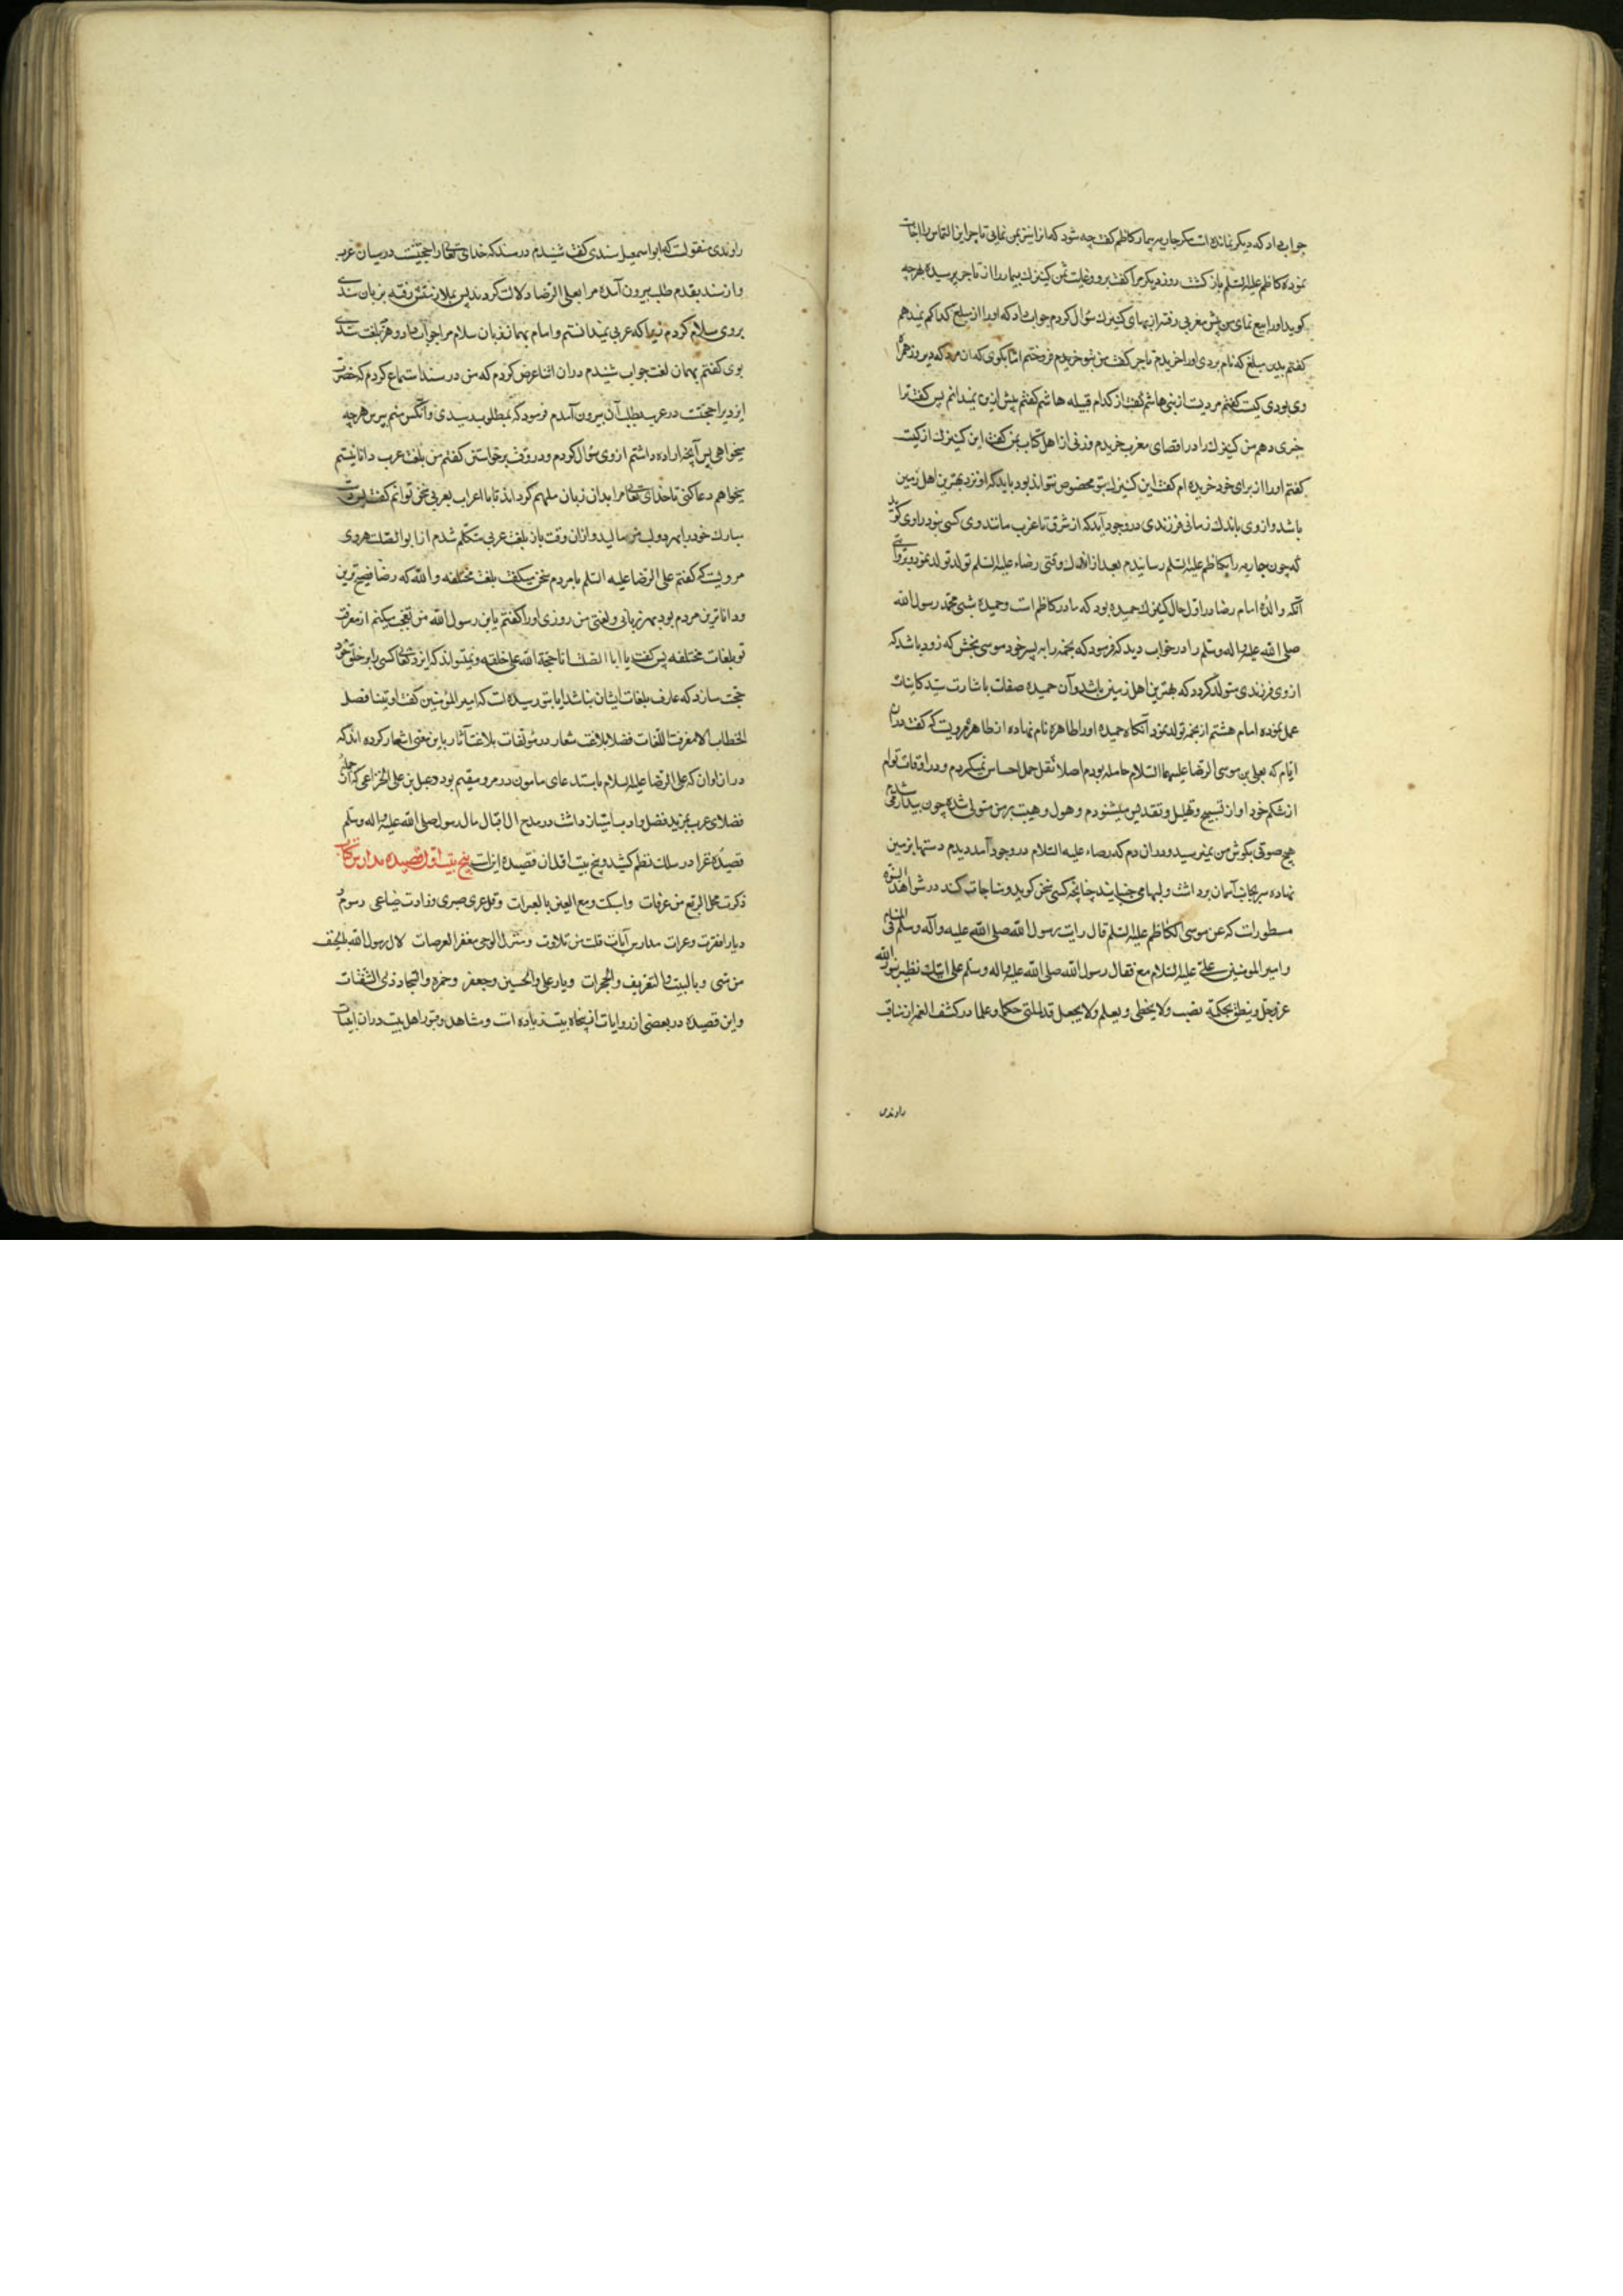 جواب داد که دیگر نمانده است مکر جاریه بیمار کاظم کفت چه شود که انرا نیز بمن نمایی تاجر این التماس را اجابت
نموده کاظم علیه السلم باز کشت روز دیکر مرا کفت برو و غایت ثمن کنیزک بیمار را از تاجر پرسیده بهرچه
کوید اورا بیع نمای من پیش مغربی رفته از بهای کنیزک سؤال کردم جواب داد که اورا از مبلغ کذا کم نمیدهم
کفتم بدین مبلغ که نام بردی اورا خریدم تاجر کفت من بتو فروختم اما بکوی که ان مرد که دیروز همراه
وی بودی کیست کفتم مردیست از بنی هاشم کفت از کدام قبیله هاشم کفتم بیش ازین نمیدانم پس کفت ترا
خبری دهم من کنیزک را در اقصای مغرب خریدم و زنی از اهل کتاب بمن کفت این کنیزک از کیست
کفتم اورا از برای خود خریده ام کفت این کنیزک بتو مخصوص نتواند بود باید که او نزد بهترین اهل زمین
باشد و از وی باندک زمانی فرزندی در وجود آید که از شرق تا غرب مانند وی کسی نبود راوی کوید
که چون جاریه را بکاظم علیه السلم رسانیدم بعد از اندک وقتی رضاء علیه السلم تولد نمود و بروایتی
آنکه والدۀ امام رضا در اول حال کنیزک حمیده بود که مادر کاظم است و حمیده شبی محمد رسول الله
صلی الله علیه و اله وسلم را در خواب دید که فرمود که نجمه را به پسر خود موسی بخش که زود باشد که
از وی فرزندی متولد کردد که بهترین اهل زمین باشد و آن حمیده صفات باشارت سید کاینات
عمل نموده امام هشتم از نجمه تولد نمود آنکاه حمیده اورا طاهره نام نهاده از طاهره مرویست که کفت در ان
ایام که بعلی بن موسی الرضا علیهما السلام حامله بودم اصلا ثقل حمل احساس نمیکردم و در اوقات نوم
از شکم خود اواز تسبیح و تهلیل و تقدیس میشنودم و هول و هیبت بر من متولی شده چون بیدار می شدم
هیچ صوتی بکوش من نمیرسید و در ان دم که رضاء علیه السلام در وجود آمد دیدم دستها بر زمین
نهاده سر بجانب آسمان برداشت و لبها می جنبانید چنانچه کسی سخن کوید و مناجات کند در شواهد النبوه
مسطورات که عن موسی الکاظم علیه السلم قال رایت رسول الله صلی الله علیه وآله وسلم فی المنام
و امیر المومنین علی علیه السلام مع فقال رسول الله صلی الله علیه و اله وسلم علی ابنک ینظر بنور الله
عز وجل و ینطق بحکمته یصیب ولا یخطی و یعلم ولا یجهل قد ملئ حکما و علما در کشف الغمه از مناقب
راوندی
راوندی منقولست که ابو اسمعیل سندی کفت شنیدم در سند که خدای تعالی را حجتیست در میان عرب
و از سند بقدم طلب بیرون آمده مرا بعلی الرضا دلالت کردند پس بملازمتش رفته بزبان سندی
بروی سلام کردم زیرا که عربی نمیدانستم و امام بهمان زبان سلام مرا جواب داد و هرچه بلغت سندی
بوی کفتم بهمان لغت جواب شنیدم در ان اثنا عرض کردم که من در سند استماع کردم که حضرت
ایزد را حجتیست در عرب بطلب آن بیرون آمدم فرمود که بمطلوب رسیدی و آنکس منم بپرس هرچه
میخواهی پس آنچه اراده داشتم از وی سؤال کردم و در وقت برخواستن کفتم من بلغت عرب دانا نیستم
میخواهم دعا کنی تا خدای تعالی مرا بدان زبان ملهم کرداند تا با اعراب بعربی سخن توانم کفت پس دست
مبارک خود را بهر دو لب من مالید و ازان وقت باز بلغت عربی متکلم شدم از ابو الصلت هروی
مرویست که کفتم علی الرضا علیه السلم با مردم سخن میکفت بلغت مختلفه و الله که رضا فصیح ترین
و داناترین مردم بود بهر زبانی و لغتی من روزی اورا کفتم یا بن رسول الله من تعجب میکنم از معرفت
تو بلغات مختلفه پس کفت یا ابا الصلت انا حجة الله علی خلقه و نمیتواند که ایزد تعالی کسی را بر خلق خود
حجت سازد که عارف بلغات ایشان نباشد ایا بتو رسیده است که امیر المؤمنین کفت اوتینا فصل
الخطاب الا معرفت اللغات فضلا بلاغت شعار در مؤلفات بلاغت آثار باین معنی اشعار کرده اند که
در ان اوان که علی الرضا علیه السلام باستدعای مامون در مرو مقیم بود دعبل بن علی الخزاعی که از جمله
فضلای عرب بمزید فضل و ادب امتیاز داشت در مدح ال اقبال مال رسول صلی الله علیه و اله وسلم
قصیدۀ غرا در سلک نظم کشید و پنج بیت اول ان قصیده اینست پنج بیت اول قصیده مدارس
ذکرت محل الربع من عرفات واسبکت دمع العین بالعبرات وقل عری صبری وزادت صبابتی رسوم
دیار اقفرت وعرات مدارس آیات خلت من تلاوت ومنزل الوحی مقفر العرصات لال رسول الله بالخیف
من منی وبالبیت والتعریف والجمرات ودیار علی والحسین وجعفر وحمزه والسجاد ذی الثفنات
و این قصیده در بعضی از روایات از پنجاه بیت زیاده است و مشاهد و قبور اهل بیت در ان ابیات